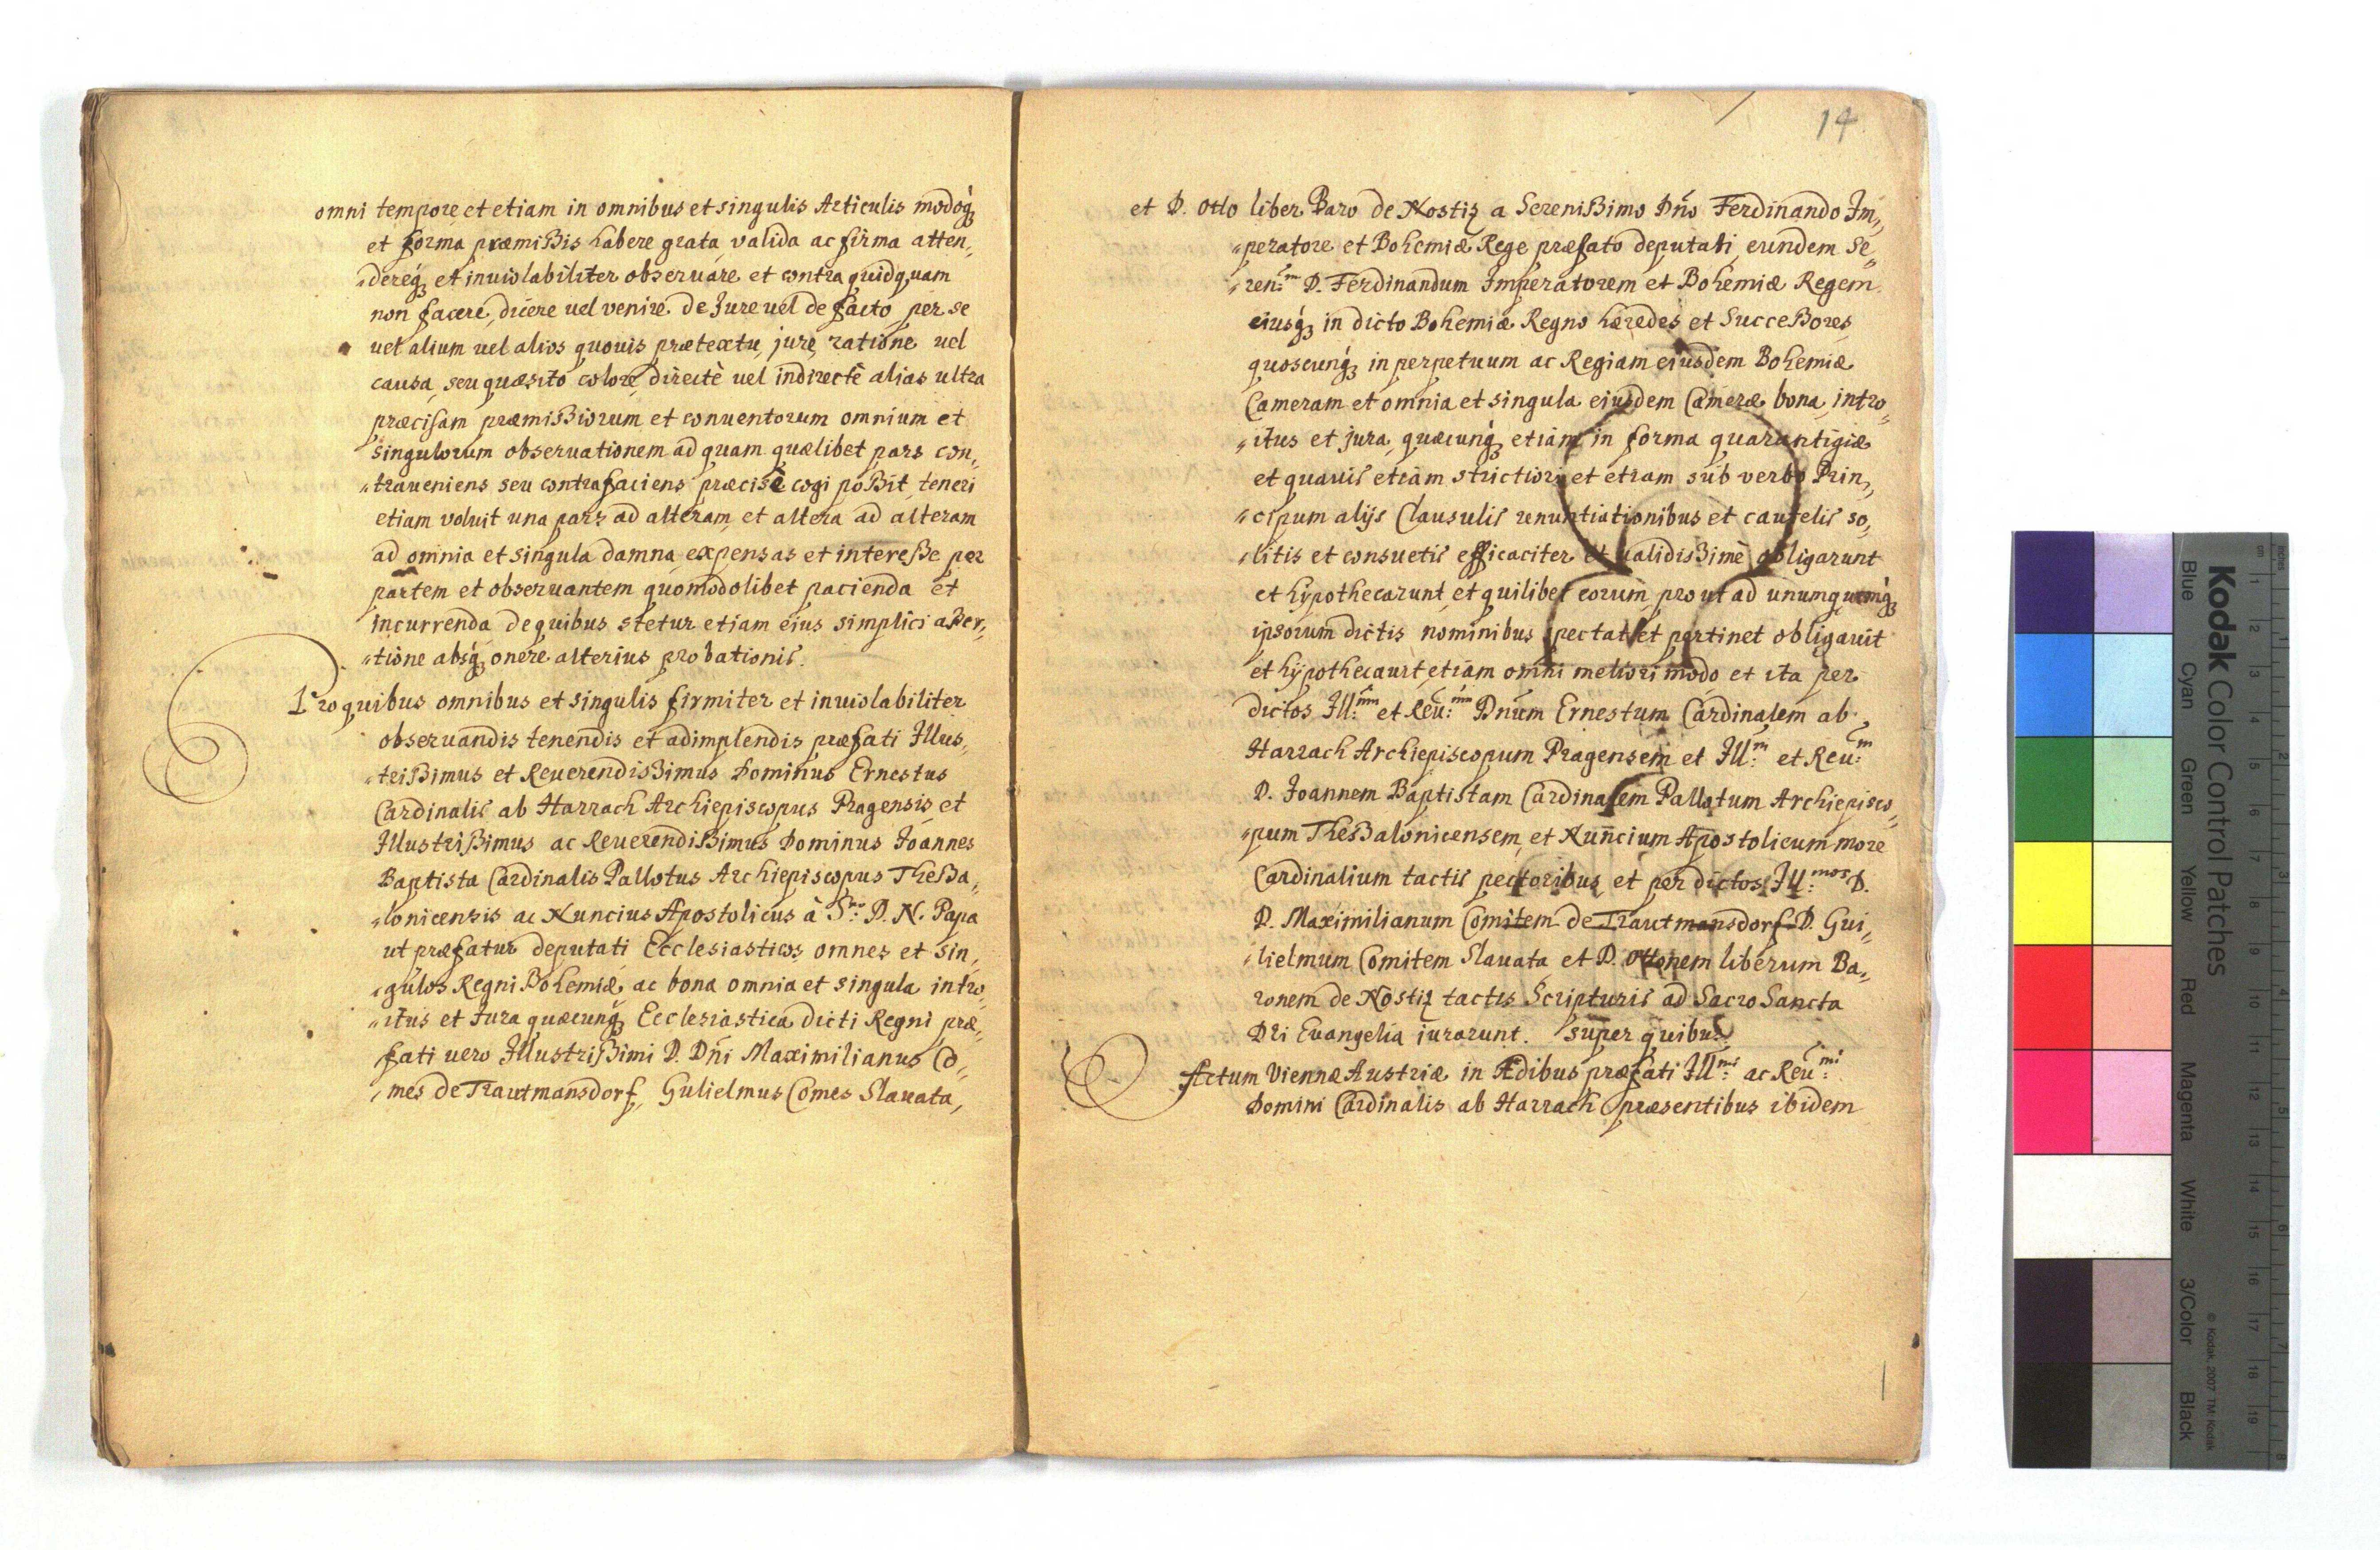 omni tempore et etiam in omnibus et singulis Articulis modoq́ꝫ
et forma præmißis habere grata valida ac firma atten„
„dereq́ꝫ et inuiolabiliter obseruare et contra quidquam
non facere, dicere uel venire de Jure uel de facto per se
uel alium uel alios quouis prætextu, jure, ratione uel
causa, seu quæsito colore, directè uel indirectè alias ultra
præcisam præmißorum et conuentorum omnium et
singulorum obseruationem ad quam quælibet pars con„
„traueniens seu contrafaciens præcisè cogi poßit, teneri
etiam voluit una pars ad alteram et altera ad alteram
ad omnia et singula damna, expensas et intereße per
partem et obseruantem quomodolibet pacienda et
incurrenda de quibus stetur etiam eius simplici aßer„
„tione absq́ꝫ onere alterius probationis.
Pro quibus omnibus et singulis firmiter et inuiolabiliter
obseruandis tenendis et adimplendis præfati Illus„
„trißimus et Reuerendißimus Dominus Ernestus
Cardinalis ab Harrach Archiepiscopus Pragensis et
Illustrißimus ac Reuerendißimus Dominus Joannes
Baptista Cardinalis Pallotus Archiepiscopus Theßa„
„lonicensis ac Nuncius Apostolicus à S.mo D. N. Papa
ut præfatur deputati Ecclesiasticos omnes et sin„
„gulos Regni Bohemiæ ac bona omnia et singula intro„
„itus et Jura quæcunq́ꝫ Ecclesiastica dicti Regni præ„
fati uero Illustrißimi D. Dñi Maximilianus Co„
„mes de Trautmansdorf, Gulielmus Comes Slauata,
14
et D. Otto liber Baro de Nostiz a Serenißimo Dño Ferdinando Im„
„peratore et Bohemiæ Rege præfato deputati, eundem Se„
„ren:m D. Ferdinandum Imperatorem et Bohemiæ Regem
eiusq́ꝫ in dicto Bohemiæ Regno hæredes et Succeßores
quoscunq́ꝫ in perpetuum ac Regiam eiusdem Bohemiæ
Cameram et omnia et singula eiusdem Cameræ bona intro„
„itus et jura, quæcunq́ꝫ etiam in forma quarantigiæ
et quauis etiam strictiori et etiam sub verbo Prin„
„cipum alijs Clausulis renuntiationibus et cautelis so„
„litis et consuetis efficaciter et ualidißimè obligarunt
et hypothecarunt, et quilibet eorum prout ad unumquemq́ꝫ
ipsorum dictis nominibus spectat et pertinet obligauit
et hypothecauit etiam omni meliori modo et ita per
dictos Ill:mum et Reu:mum Dnūm Ernestum Cardinalem ab
Harrach Archiepiscopum Pragensem et Ill:m et Reu:m
D. Joannem Baptistam Cardinalem Pallotum Archiepisco„
„pum Theßalonicensem, et Nuncium Apostolicum more
Cardinalium tactis pectoribus et per dictos Ill:mos D.
D. Maximilianum Comitem de Trautmansdorf D. Gui„
„lielmum Comitem Slauata et D. Ottonem liberum Ba„
ronem de Nostiz tactis Scripturis ad Sacro Sancta
Dei Euangelia iurarunt. Super quibus
Actum Viennæ Austriæ in Ædibus præfati Ill:mi ac Reu:mi
Domini Cardinalis ab Harrach præsentibus ibidem
Kodak Color Control Patches
Blue Cyan Green Yellow Red Magenta White 3/Color Black
© Kodak, 2007 TM: Kodak